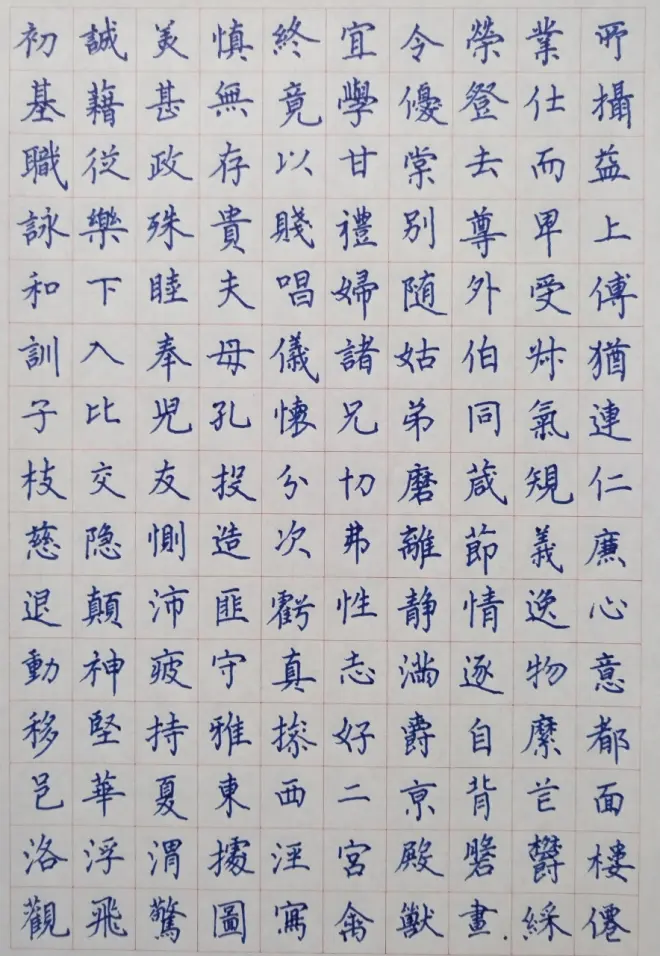 初誠美慎終宜令榮業所
基藉甚無竟學優登仕攝
職從政存以甘棠去而益
詠樂殊貴賤禮別尊卑上
和下睦夫唱婦随外受傅
訓入奉母儀諸姑伯叔猶
子比兒孔懷兄弟同氣連
枝交友投分切磨葴規仁
慈隐惻造次弗離節義廉
退顛沛匪虧性静情逸心
動神疲守真志滿逐物意
移堅持雅操好爵自縻都
邑華夏東西二京背芒面
洛浮渭據涇宮殿盤鬱樓
觀飛驚圖寫禽獸畫綵僊